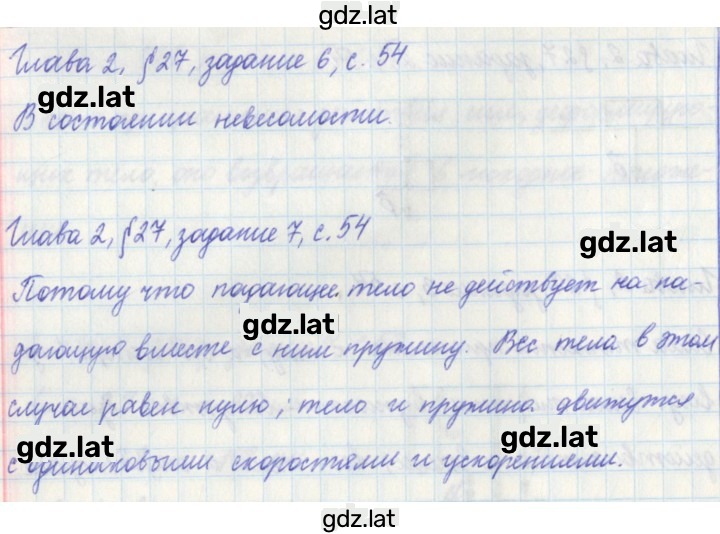 gdz.lat
Глава 2, §27, задание 6, с. 54
gdz.lat
В состоянии невесомости.
Глава 2, §27, задание 7, с. 54
gdz.lat
Потому что падающее тело не действует на па-
gdz.lat
дающую вместе с ним пружину. Вес тела в этом
случае равен нулю, тело и пружина движутся
gdz.lat
gdz.lat
с одинаковыми скоростями и ускорениями.
gdz.lat